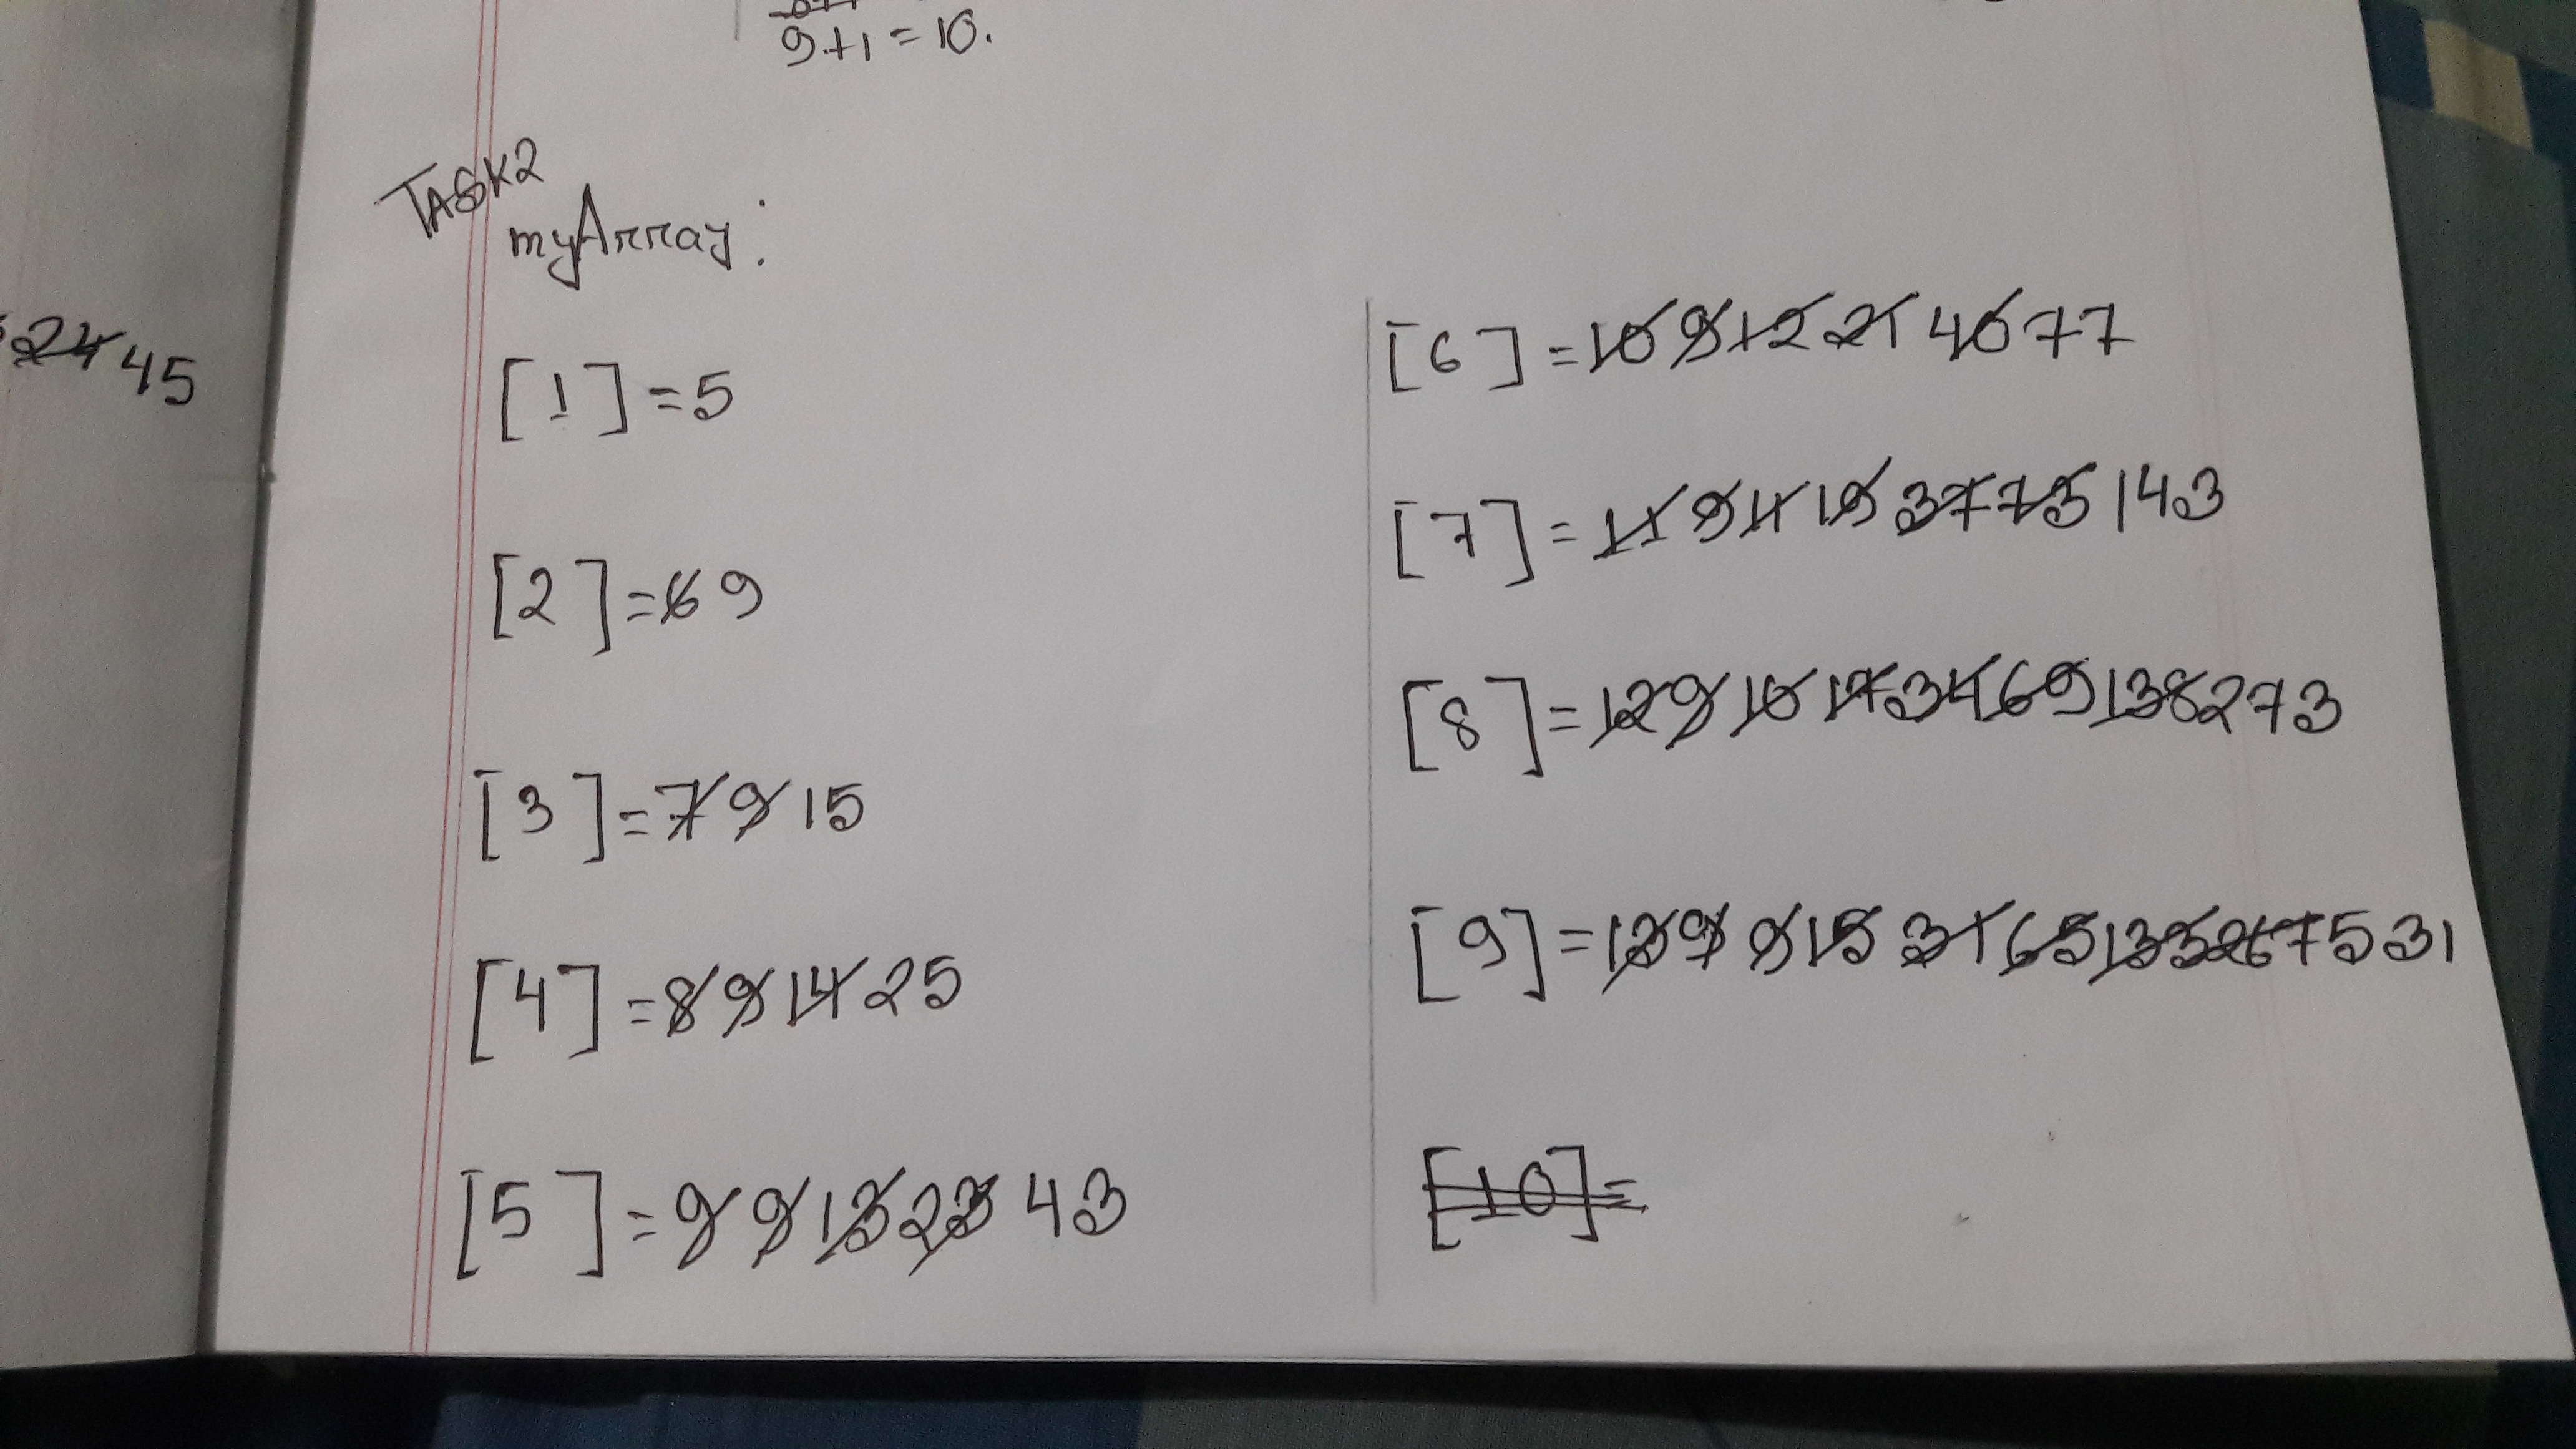 9+1=10.
TASK2
myArray:
24 45
[1]=5
[2]=6 9
[3]=7 9 15
[4]=8 9 14 25
[5]=9 9 13 23 43
[6]=10 9 12 21 40 77
[7]=11 9 11 19 37 73 143
[8]=12 9 10 17 34 69 138 273
[9]=13 9 9 15 31 65 133 267 531
[10]=